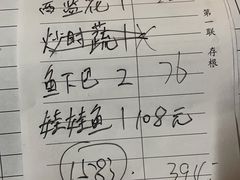 西蓝花 1
炒时蔬 1
鱼下巴 2 76
娃娃鱼 1 108元
1583
第一联 存根